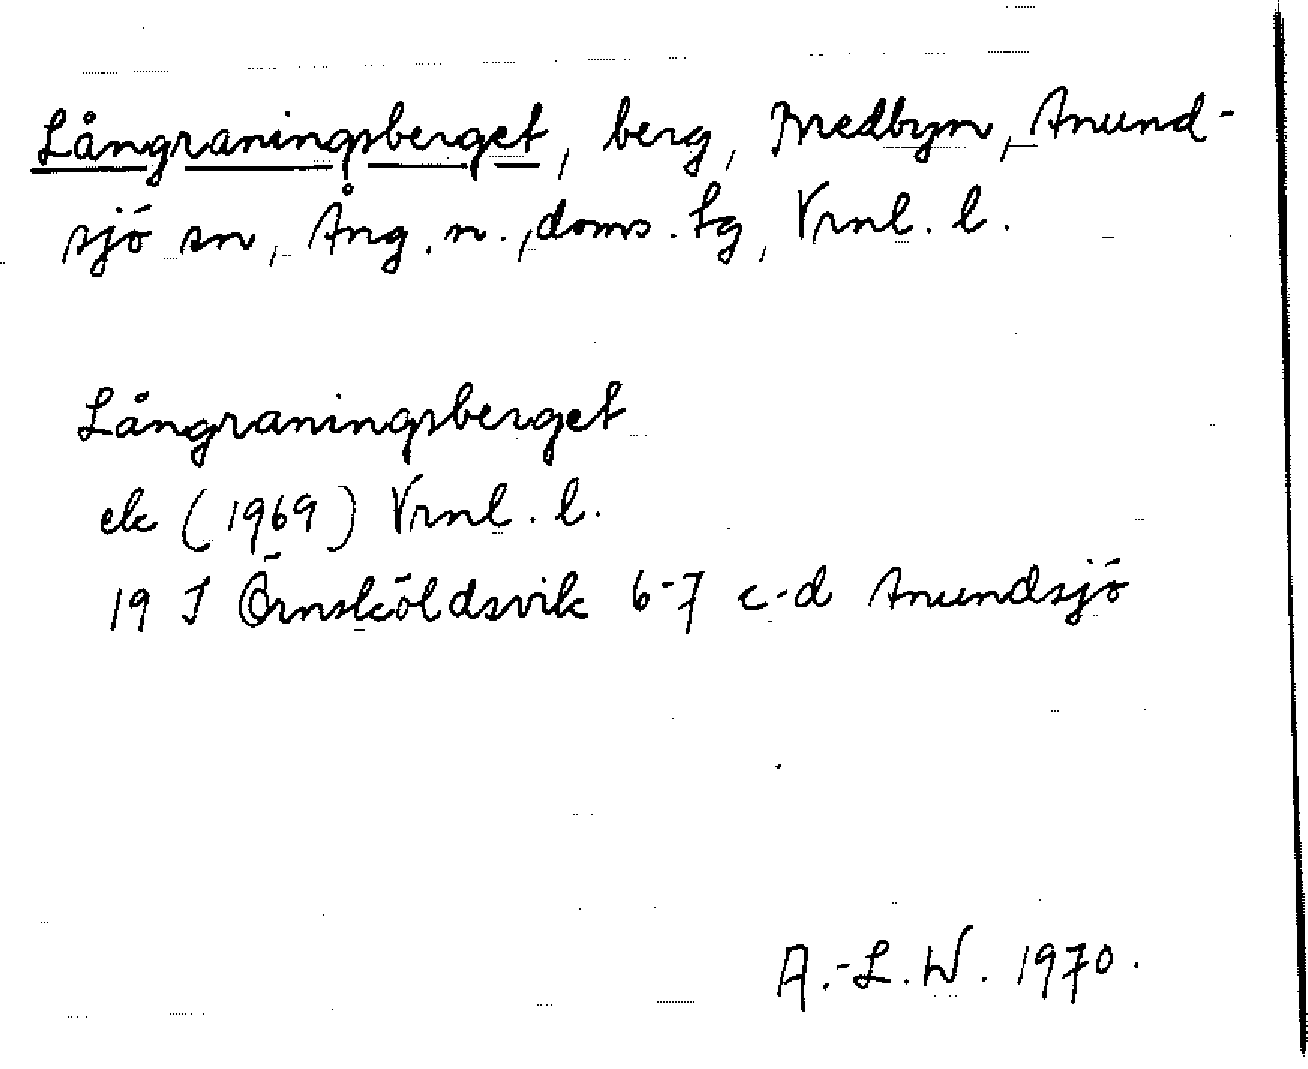 Långraningsberget, berg, Bredbyn, Anund-
sjö sn, Ång. n., doms. lg, Vrnl. l.
Långraningsberget
ek (1969) Vrnl. l.
19 J Örnsköldsvik 6-7 c-d Anundsjö
A.-L. W. 1970.